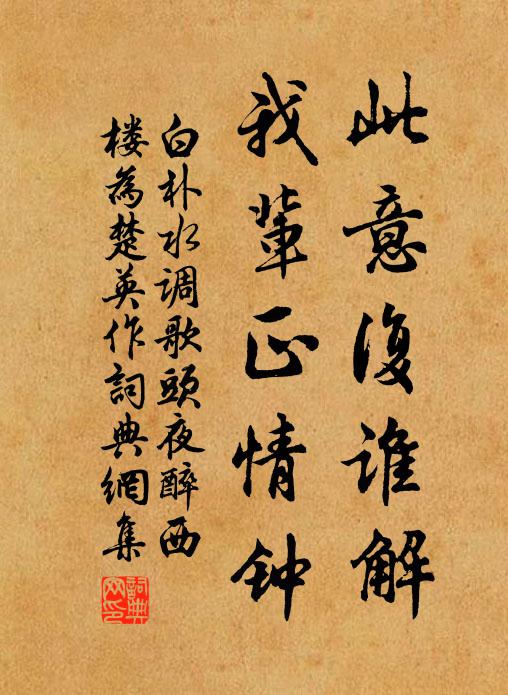 此意復谁解
我輩正情钟
白朴水调歌頭夜醉西
楼為楚英作詞典網集